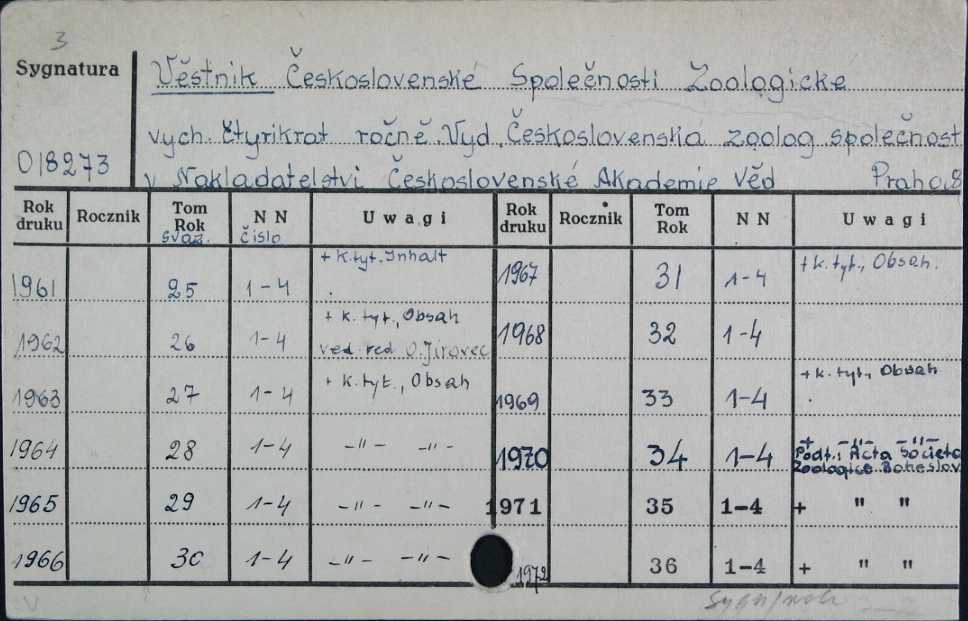 3
Sygnatura
Věstnik Československé Společnosti Zoologicke
vych. čtyrikrat ročně. Vyd. Československá zoolog společnost
018273
v Nakladatelstvi Československé Akademie Věd Praha,8
Rok druku Rocznik Tom Rok N N Uwagi Rok druku Rocznik Tom Rok N N Uwagi
svaz. čislo
1961 25 1-4 + k.tyt. Inhalt 1967 31 1-4 + k. tyt., Obsah.
1962 26 1-4 + k. tyt., Obsah 1968 32 1-4
ved. red. O. Jirovec
1963 27 1-4 + k. tyt., Obsah 1969 33 1-4 + k. tyt., Obsah
1964 28 1-4 -"- -"- 1970 34 1-4 + -"- -"-
Podt.: Acta Societa
Zoologice Boheslov
1965 29 1-4 -"- -"- 1971 35 1-4 + " "
1966 30 1-4 -"- -"- 1972 36 1-4 + " "
V